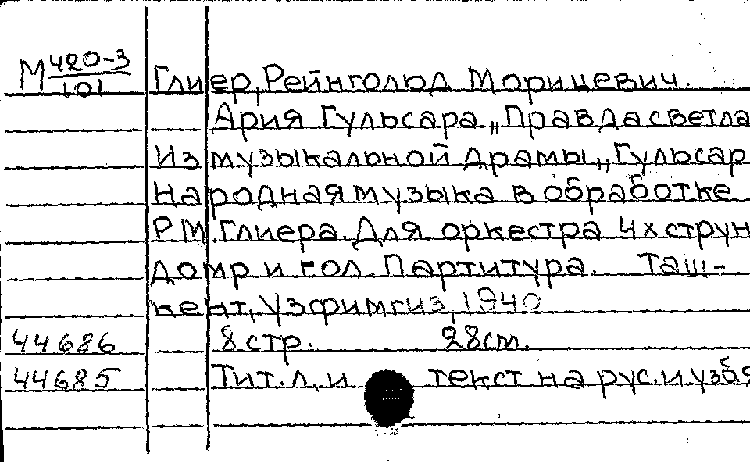 М 420-3 Глиер, Рейнголюд Морицевич.
101
Ария Гульсара „Правда светла
Из музыкальной драмы „Гульсар
Народная музыка в обработке
Р.М. Глиера. Для оркестра 4х струн
домр и гол. Партитура. Таш-
кент, Узфимгиз, 1940
44686 8 стр. 28 cm.
44685 Тит. л. и текст на рус. и узб